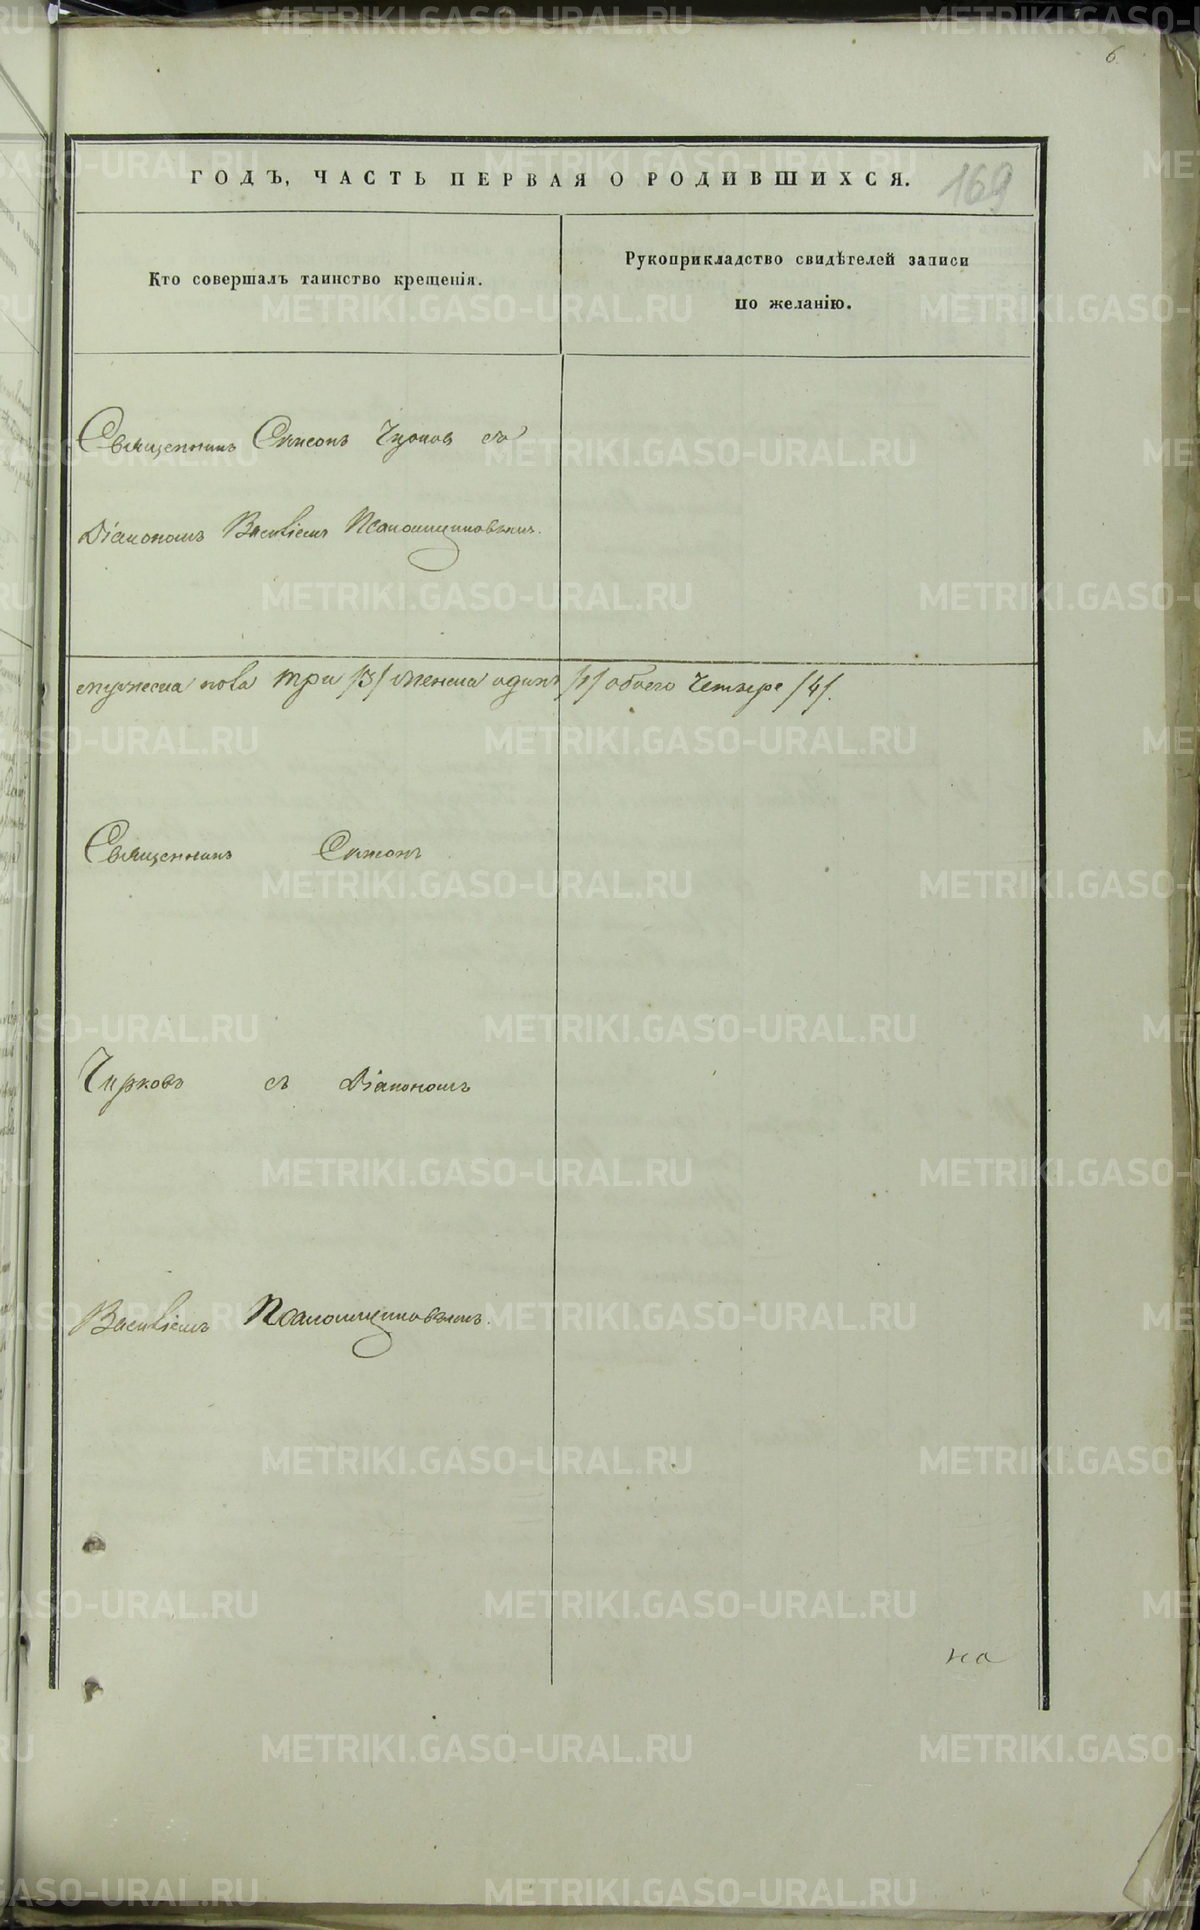 6
ГОДЪ, ЧАСТЬ ПЕРВАЯ О РОДИВШИХСЯ.
169
Кто совершалъ таинство крещенія.
Рукоприкладство свидѣтелей записи
по желанію.
Священникъ Симеонъ съ
Діакономъ Василіемъ
мужеска пола три /3/ женска одинъ /1/ обоего четыре /4/.
Священникъ Симеонъ
Чирковъ съ Діакономъ
Василіемъ
на
METRIKI.GASO-URAL.RU